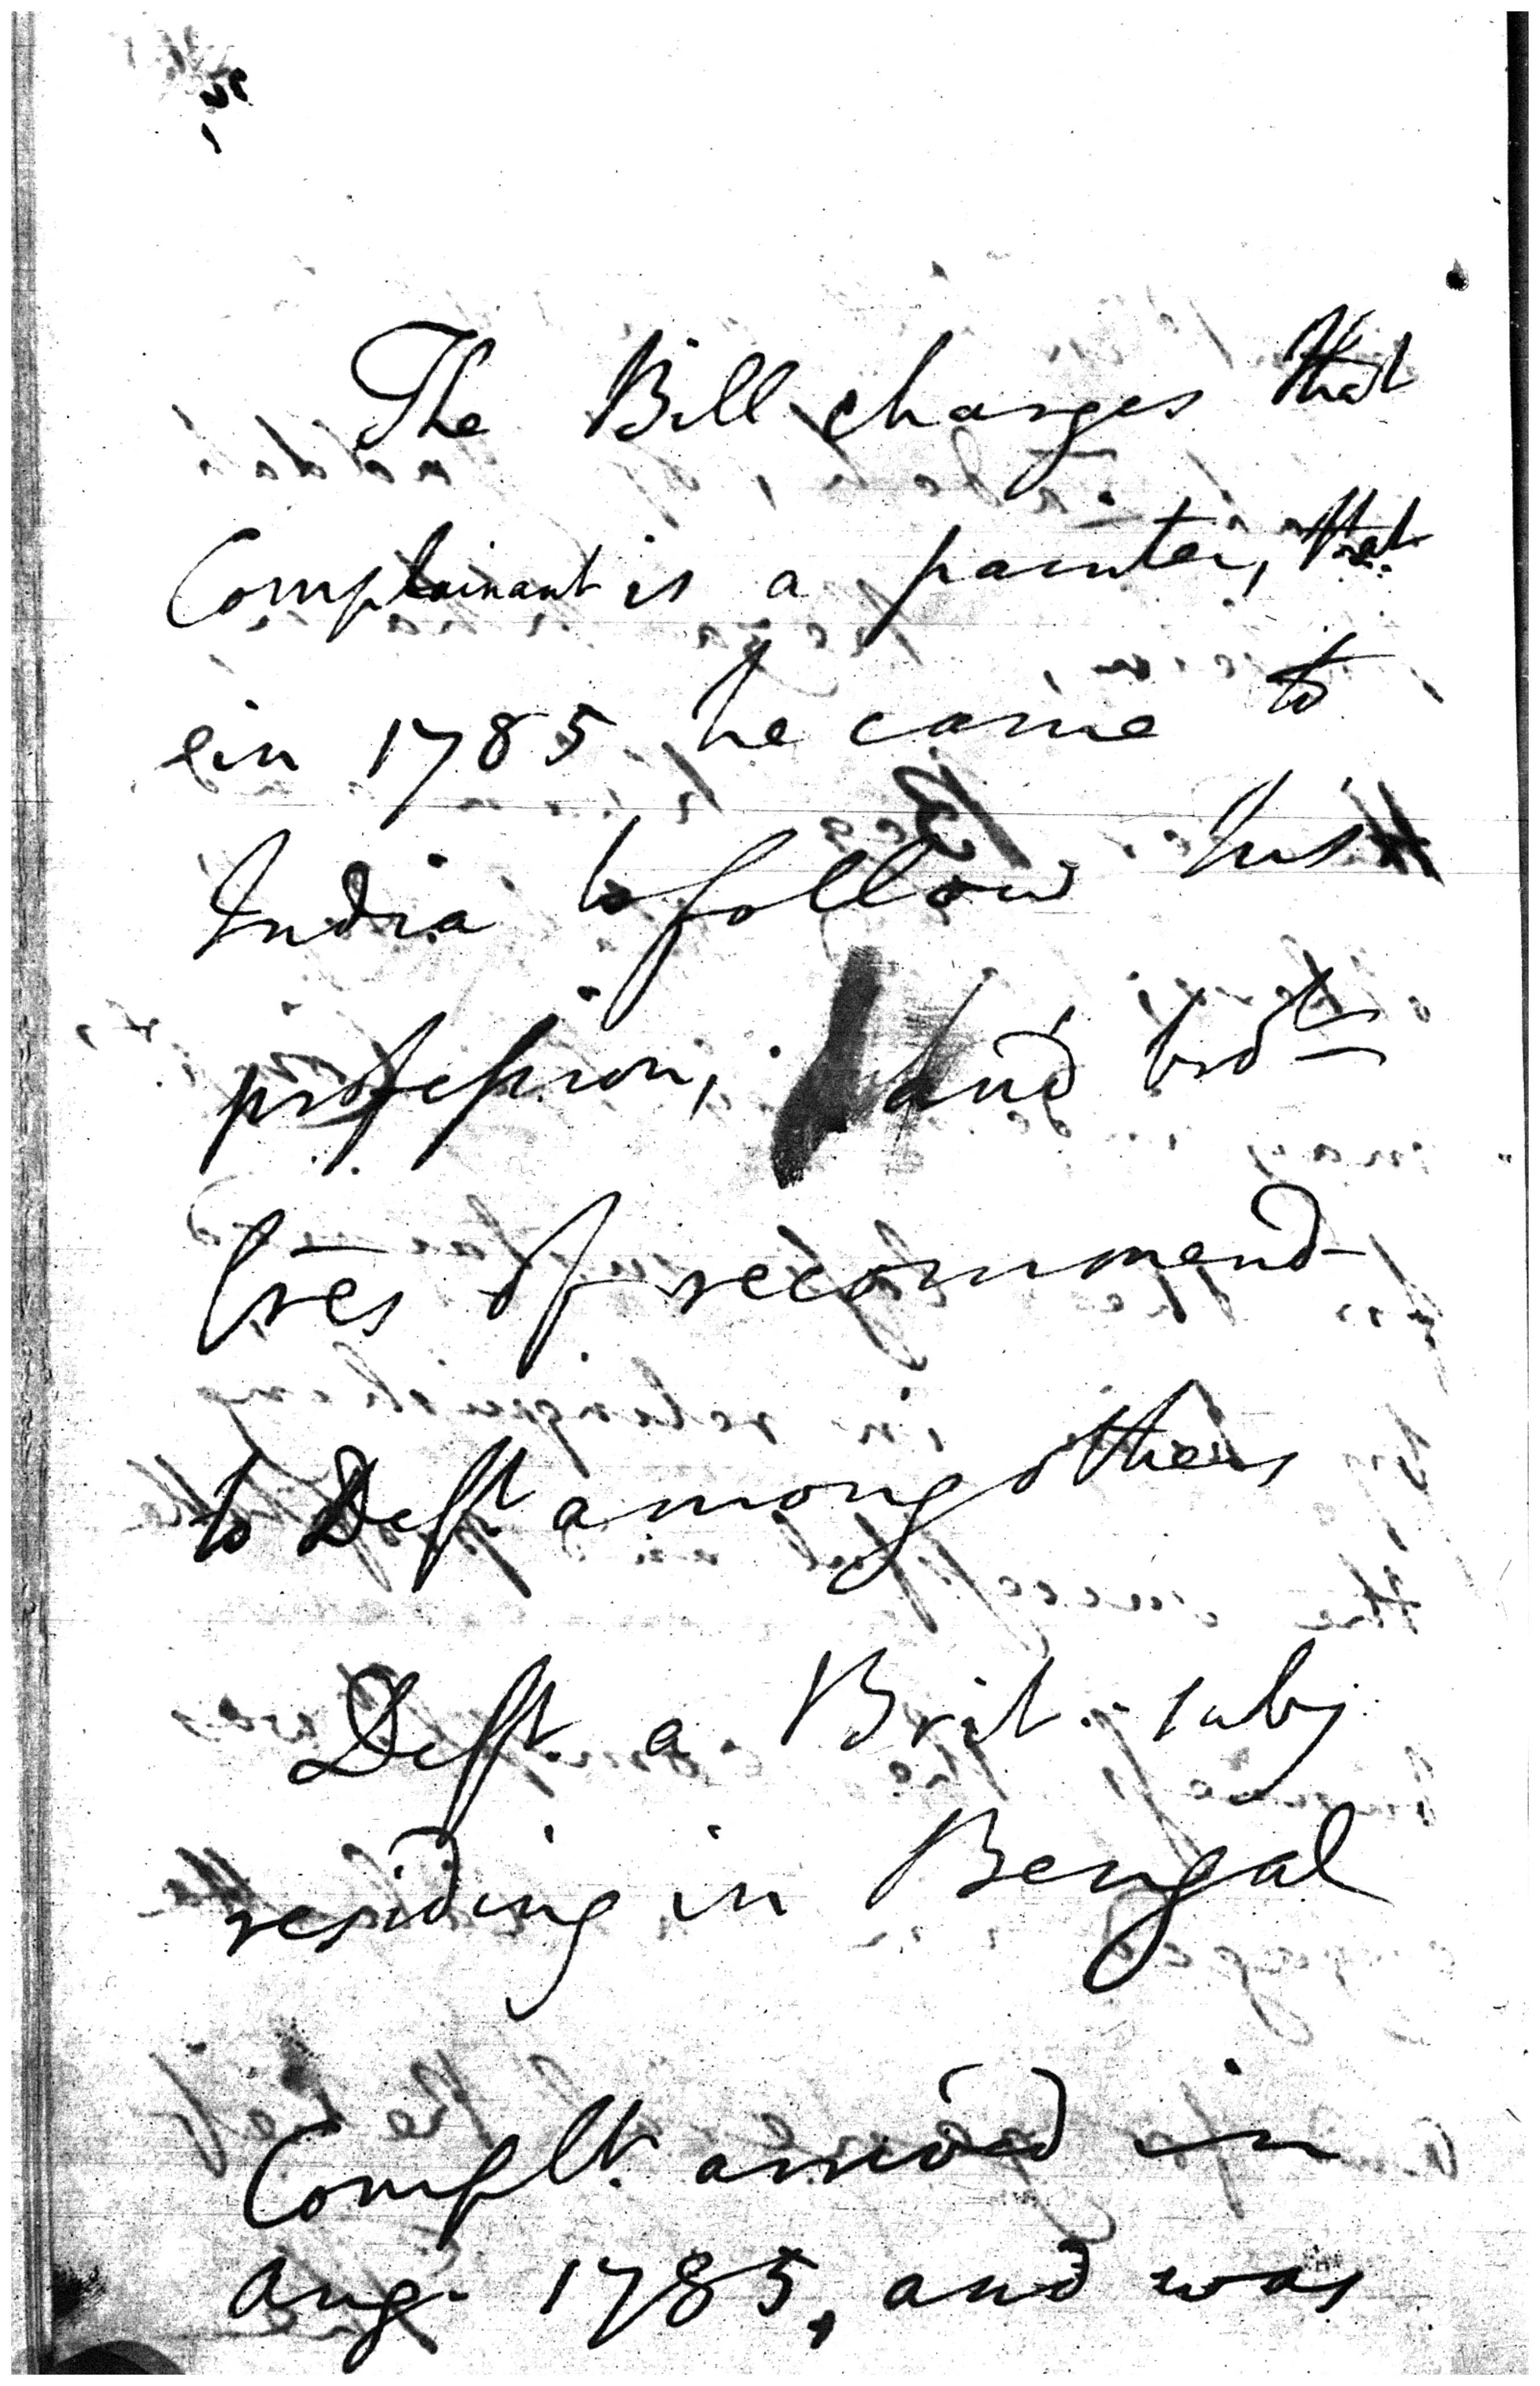 The Bill charges that
Complainant is a painter, that
in 1785 he came to
India to follow his
profession, and brot
lres of recommend
to Deft. among others
Deft. a Brit. subj
residing in Bengal
Complt. arrived in
Aug. 1785, and was